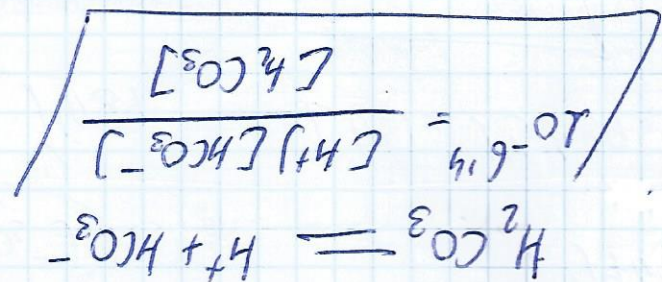 H₂CO₃ = H⁺ + HCO₃⁻
10⁻⁶'⁴ = [H⁺][HCO₃⁻] / [H₂CO₃]